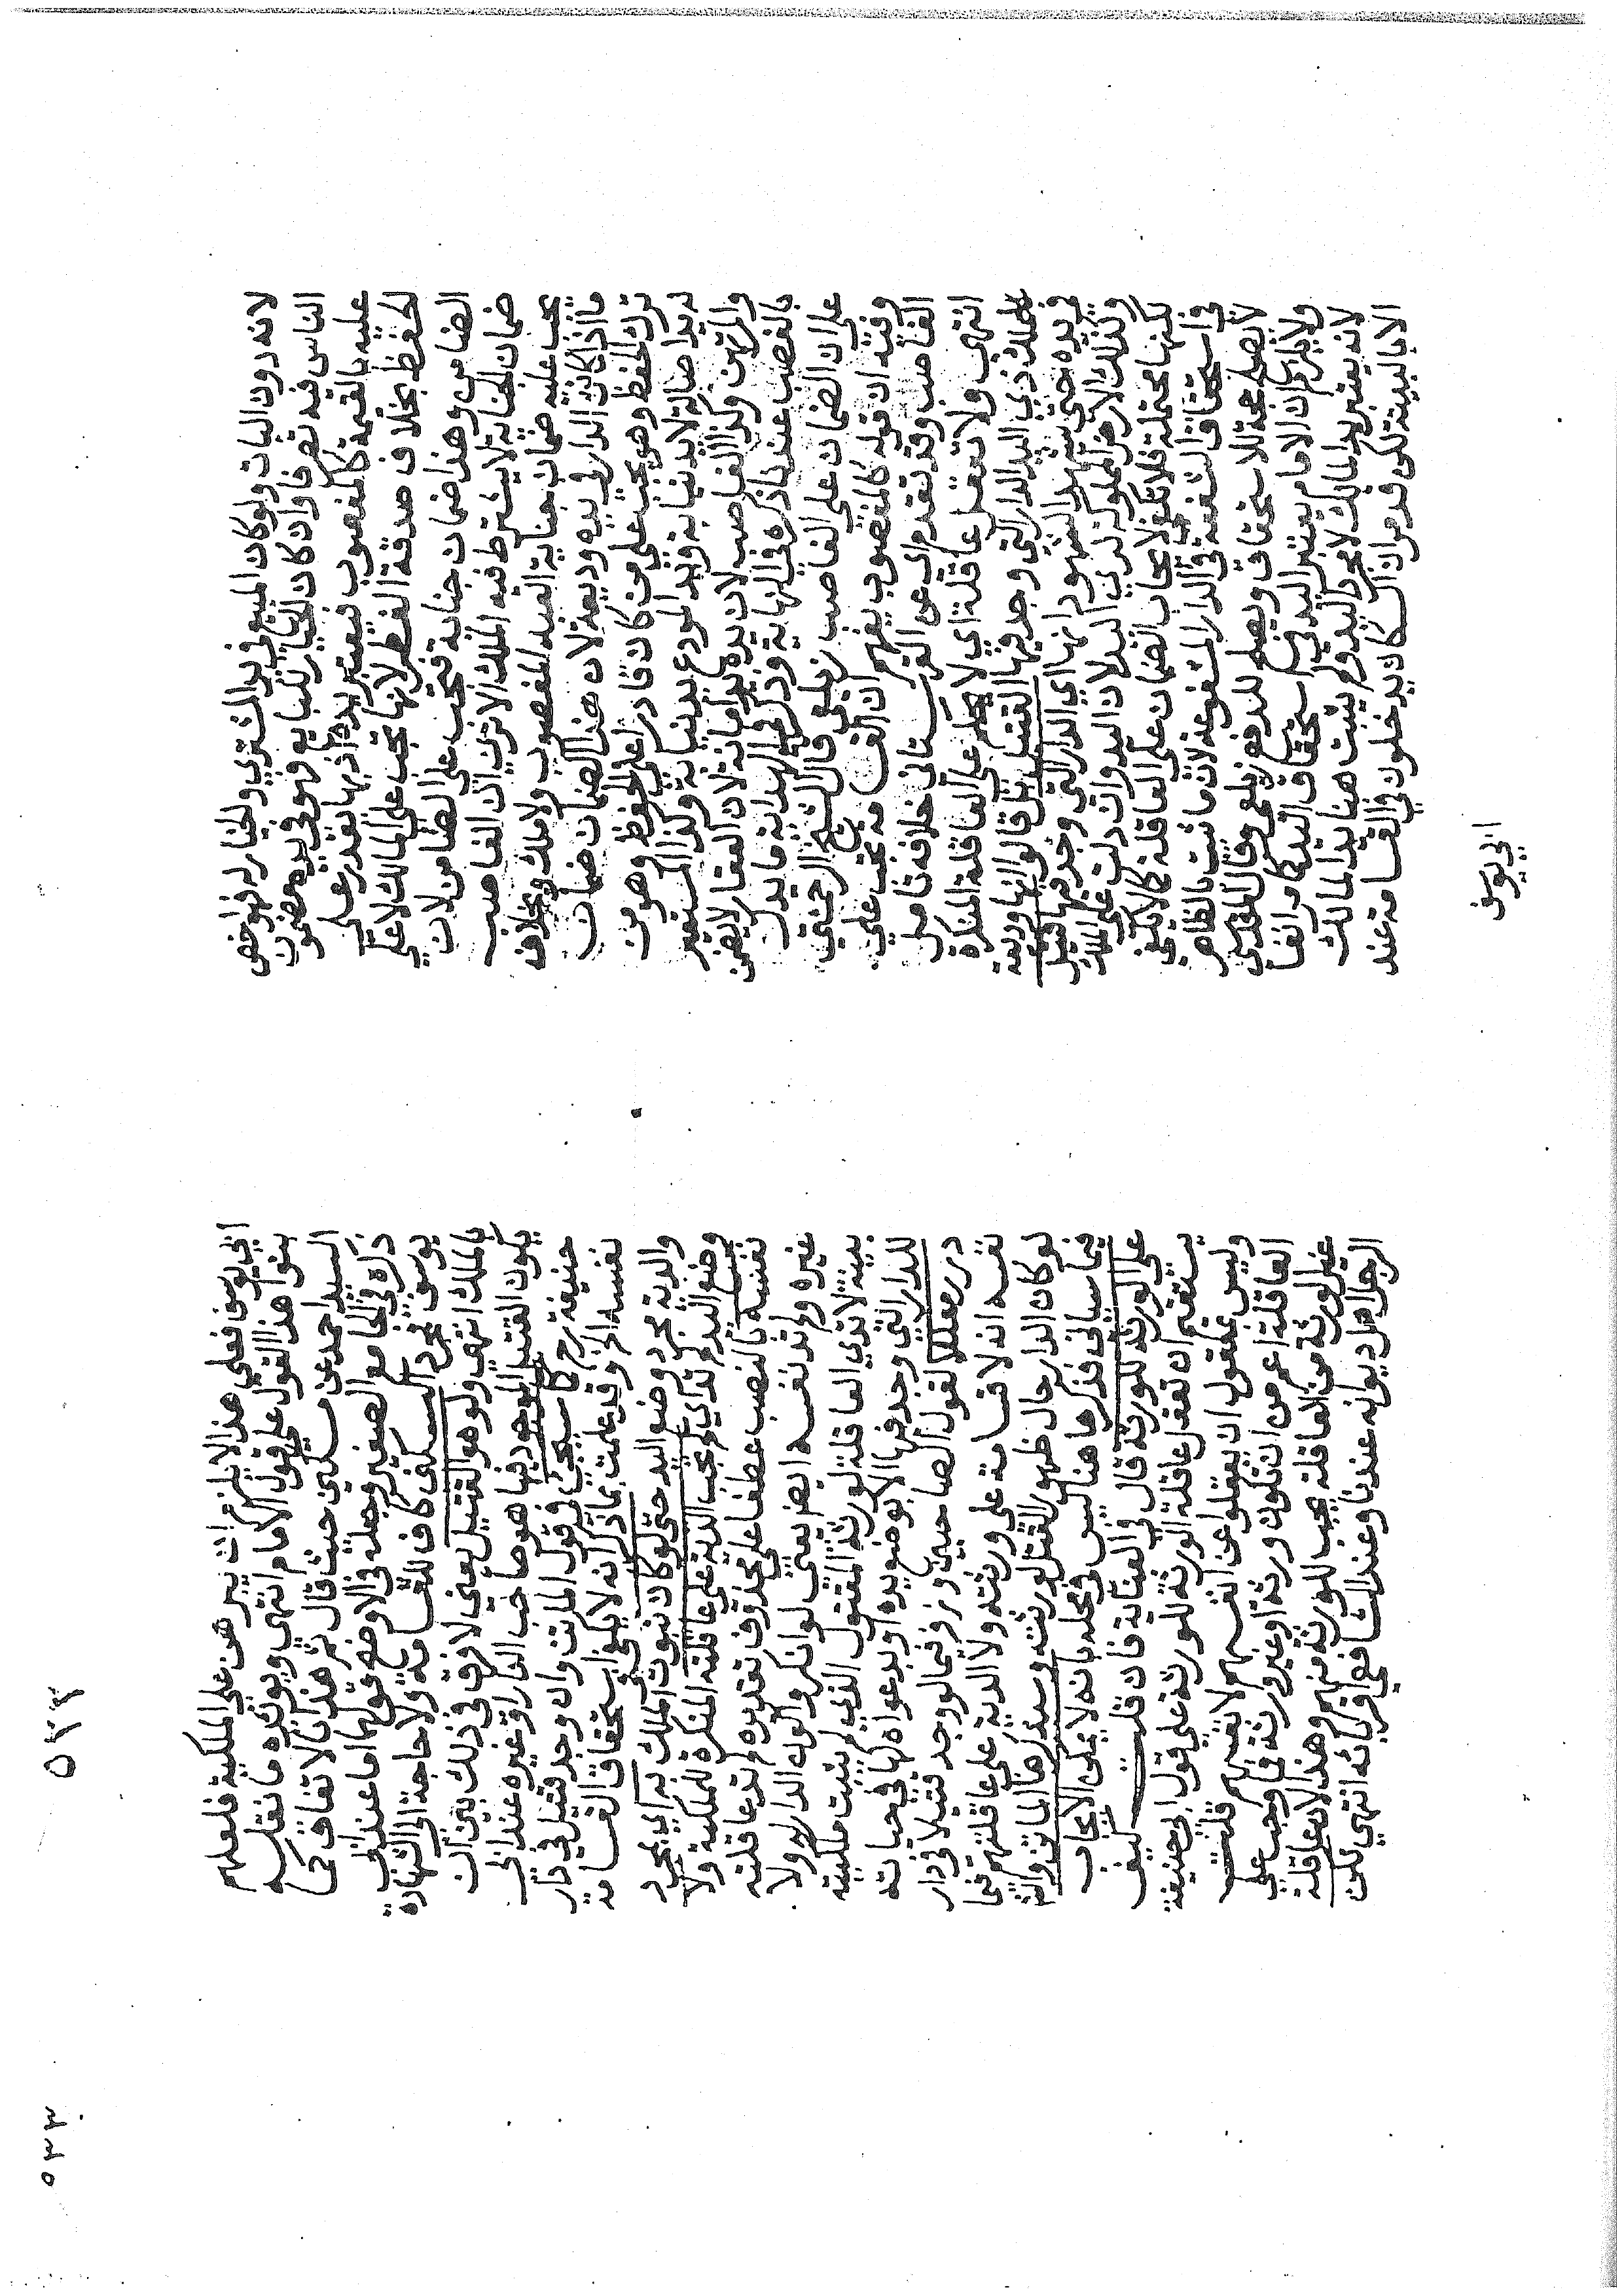 لانه دون البات ولو كان المبيع في يد المشتري والخيار له فهو اخص
الناس فيه تصرفا وان كان الخيار للبايع فهو في يده مضمون
عليه بالقيمة كالمغصوب فيعتبر يده اذ بها يقدر على
الحفظ بخلاف صدقة الفطر لانها تجب على المالك لا على
الضامن وهذا ضمان جناية فتجب على الضامن لان
ضمان الجناية لا يشترط فيه الملك الا ترى ان الغاصب
يجب عليه ضمان جناية العبد المغصوب ولا ملك وبخلاف
ما اذا كانت الدار في يده وديعة لان هذا الضمان ضمان
ترك الحفظ وهو يجب على من كان قادرا على الحفظ وهو من
له يد اصالة لا يد نيابة ويد المودع يد نيابة وكذا المستعير
والمرتهن وكذا الغاصب لان يده يد امانة لان العقار لا يضمن
بالغصب عندنا ذكره في النهاية وذكر في الهداية ما يدل
على ان الضمان على الغاصب زيلعي قال الشيخ الرحمتي
وفيه ان قوله كالمغصوب يفهم ان القسامة تجب على
الغاصب وقد تقدم اى عن القهستاني خلافه تامل
انتهى ولا تعقل عاقلة اي لا يحكم على العاقلة المنكرة
للملك ذي اليد الدار التي وجد فيها القتيل بل قالوا انها وديعة
في يده حتى يشهد الشهود انها اي الدار التي وجد فيها قتيل
وكذلك الارض المملوكة لذي اليد لان اليد وان دلت على الملك
لكنها محتملة فلا تكفي لايجاب الضمان على العاقلة كما لا يكفي
في استحقاق الشفعة في الدار المشفوعة لان ما ثبت بالظاهر
لا يصلح حجة للاستحقاق ويصلح للدفع زيلعي وقال المقدسي
ولا يلزم ان الامام يعتبر اليد في استحقاق اليد كما مر انفا
لانه يعتبر يد المالك لا مجرد اليد ولم يثبت هنا يد المالك
الا بالبينة لكن قدموا ان السكان يدخلون في القسامة عند
ابي يوسف
ابي يوسف فعلى هذا لا يلزم ان يبرهن على الملكية فلعلهم
بنوا هذا القول على قول الامام انتهى ويؤيده ما نقله
السيد احمد عن مسكين حيث قال ثم هذا بالاتفاق كما
ذكره في الجامع الصغير وجعله في الاوضح قولهما اما عند ابي
يوسف فمجرد السكنى كاف للقسامة ولا حاجة الى الشهادة
بالملك انتهى ولو هو القتيل يعني لا فرق في ذلك بين ان
يكون القتيل الموجود فيها هو صاحب الدار او غيره عند ابي
حنيفة رح كما سيجئ في قول الماتن وان وجد قتيل في دار
نفسه الخ وقد علمت بما ذكر انه لا يكفي استحقاق القسامة
والدية مجرد وضع اليد حتى لو كان ثبوت الملك به اي بمجرد
وضع اليد لم تدي لم تجب الدية على عاقلته المنكرة للملكية ولا
نفسه بالنصب عطفا على محذوف تقديره لم تد عاقلته
غيره ولم تد نفسه ايضا يعني لو انكروا كون الدار له ولا
بينة لا تدي العاقلة لورثة المقتول الذي لم يثبت ملكيته
للدار التي وجد فيها الا بوضع يده او بدعواه لها في حياته
درر معللا لقول الصاحبين وزفر فيما لو وجد قتيلا في دار
نفسه انه لا قسامة على ورثته ولا الدية على عاقلتهم فيما
لو كان الدار حال ظهور القتل لورثته وسيذكرها الماتن والش
فيما سياتي فذكرها هنا ليس في محله بانه لا يمكن الايجاب
على الورثة للورثة قال في العناية فان قلت كيف
يستقيم ان تعقل عاقلة الورثة للورثة على قول ابي حنيفة
وليس بمعقول ان يعقلوا عن انفسهم لانفسهم قلت
العاقلة اعم من ان تكون ورثة او غير ورثة فما وجب على
غير الورثة من العاقلة يجب للورثة منهم وهذا لان عاقلة
الرجل اهل ديوانه عندنا وعند الشافعي اقربائه انتهى لكن
٥٣٣
٥٣٣